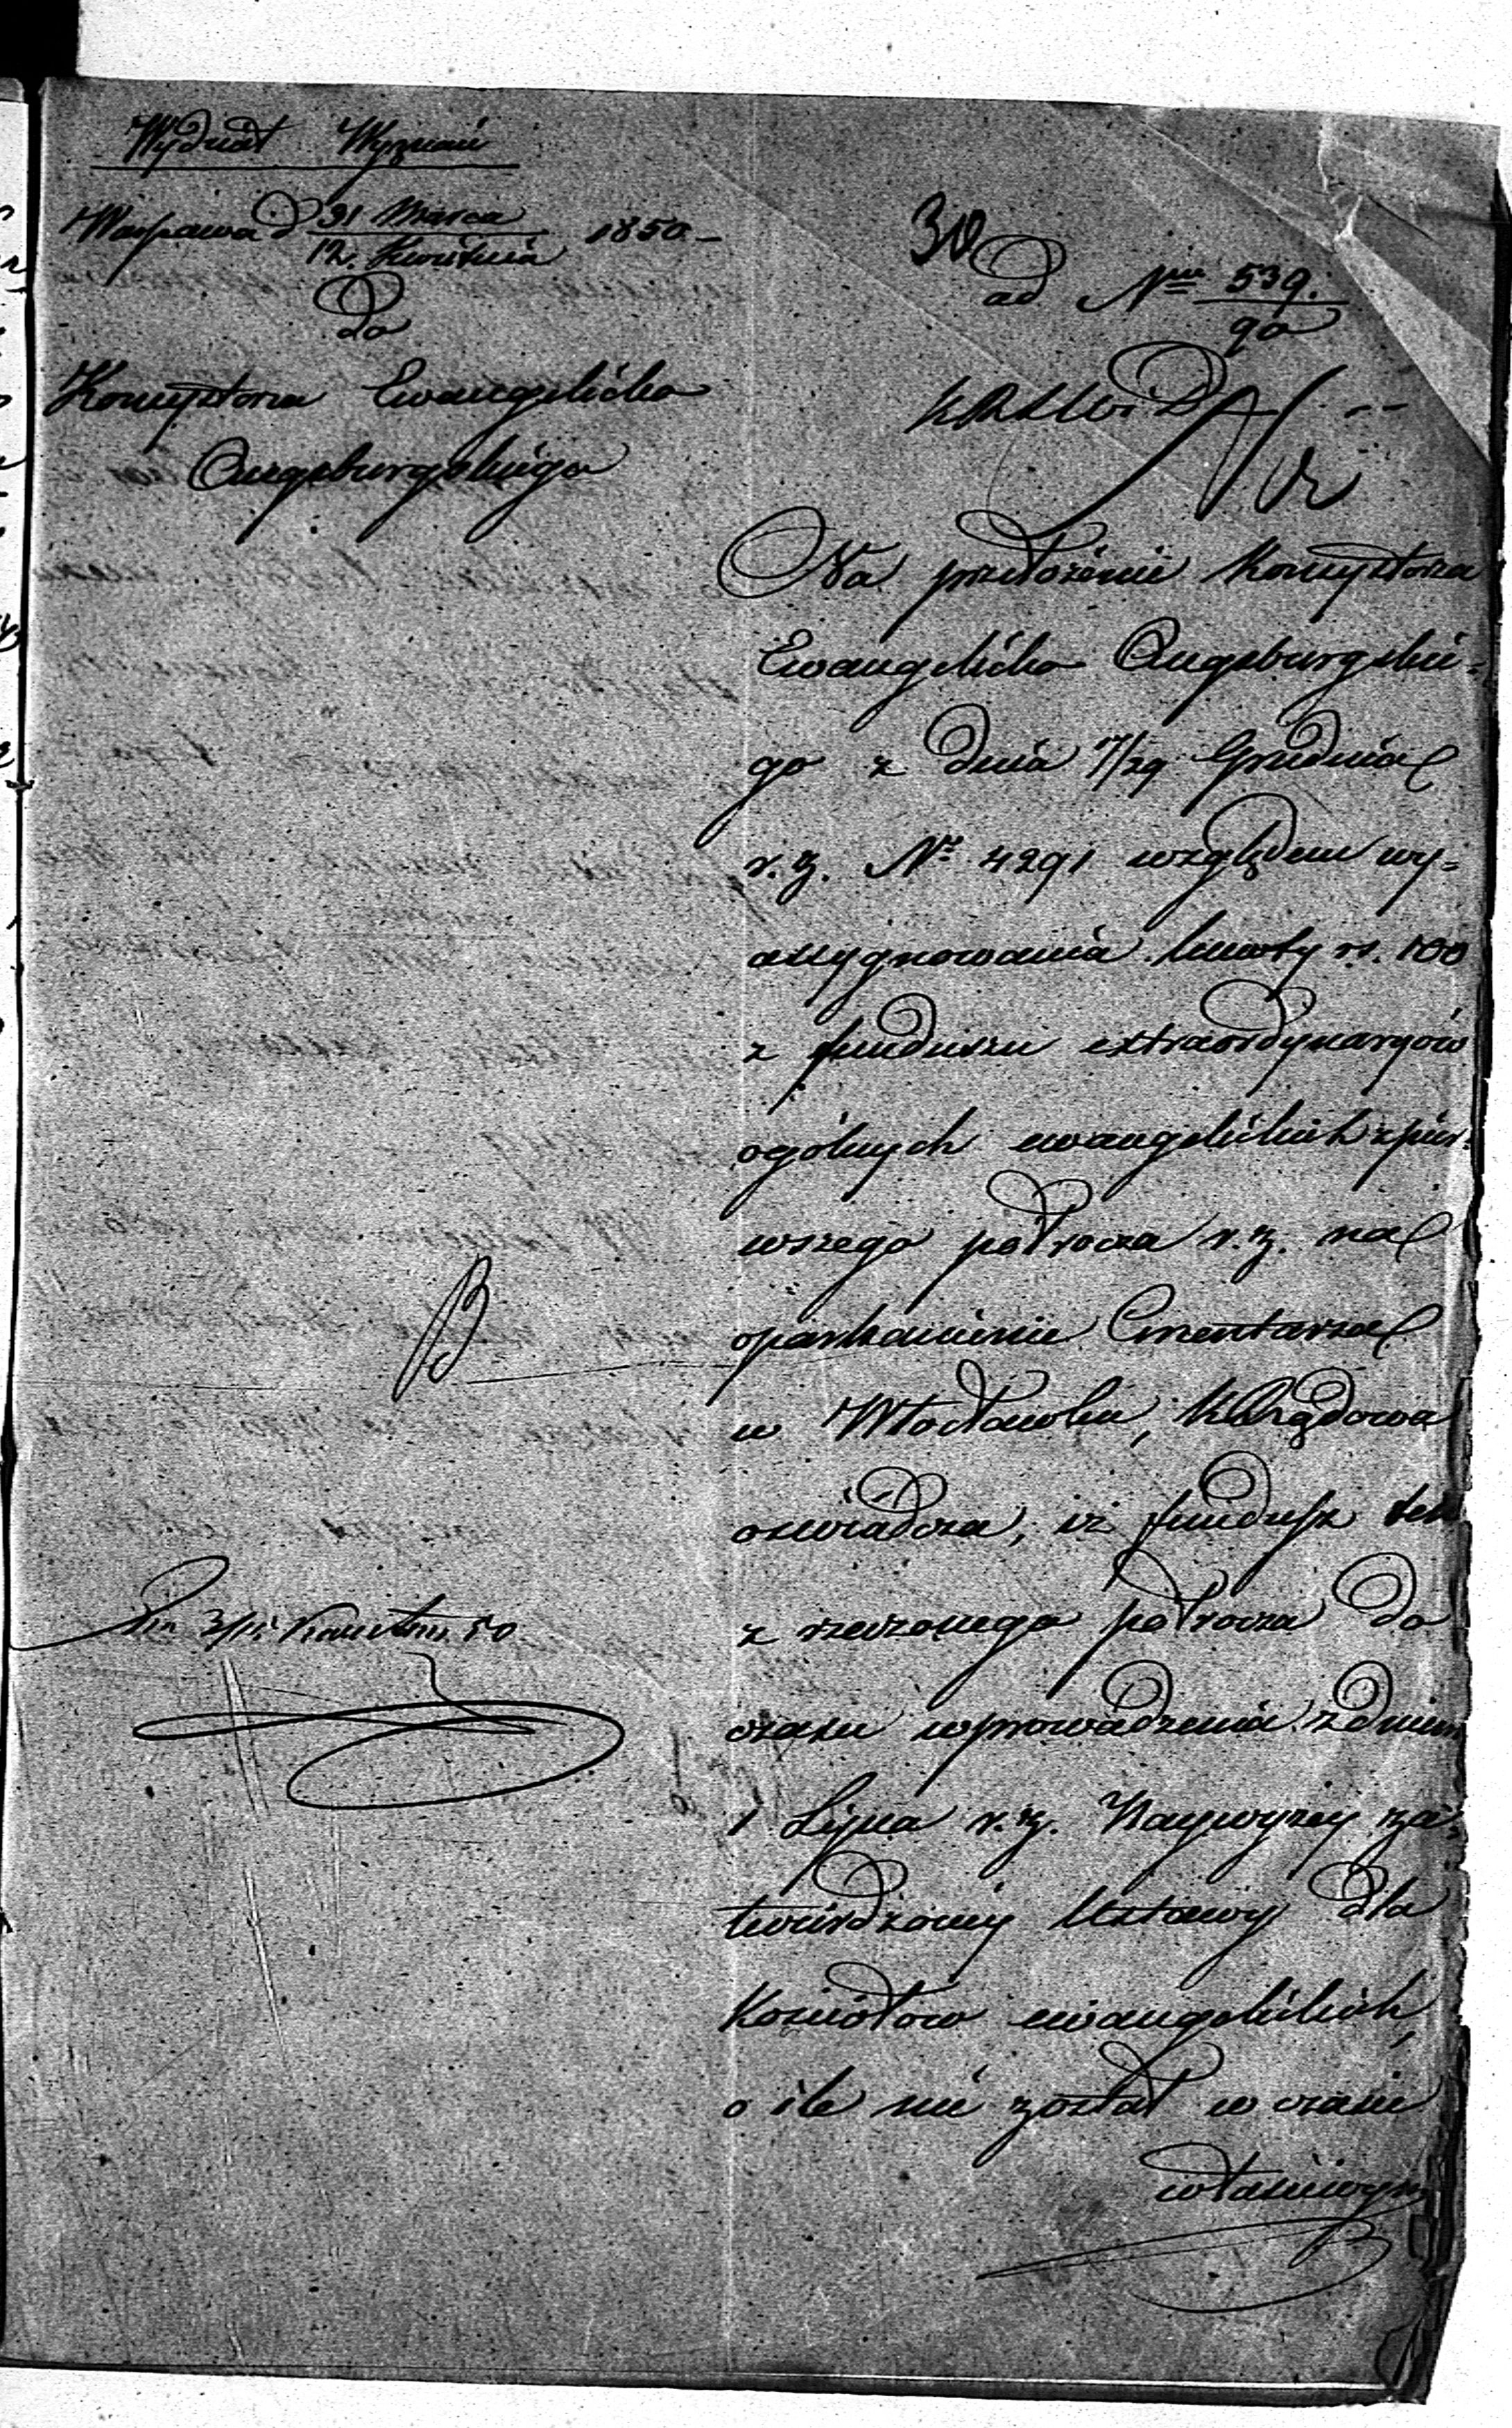 Wydział Wyznań
Warszawa d 31 Marca / 12. Kwietnia 1850 –
30
ad Nrm 539. / 90
Do
Konsystorza Ewangelicko
Augsburgskiego
K R S W i D
Na przełożenie Konsystorza
Ewangelicko Augsburgskie=
go z dnia 17/29 Grudnia
r. z. No 4291 względem wy=
assygnowania kwoty rs. 100
z funduszu extraordynaryów
ogólnych ewangelickich z pier
wszego półrocza r. z. na
oparkanienie Cmentarza
w Włocławku, K Rządowa
oświadcza, iż fundusz ten
z rzeczonego półrocza do
czasu wprowadzenia z dniem
1 Lipca r. z. Naywyżey za=
twierdzoney Ustawy dla
Kościołów ewangelickich,
o ile nie został w czasie
właściwym
B
3/15 Kwietnia 50